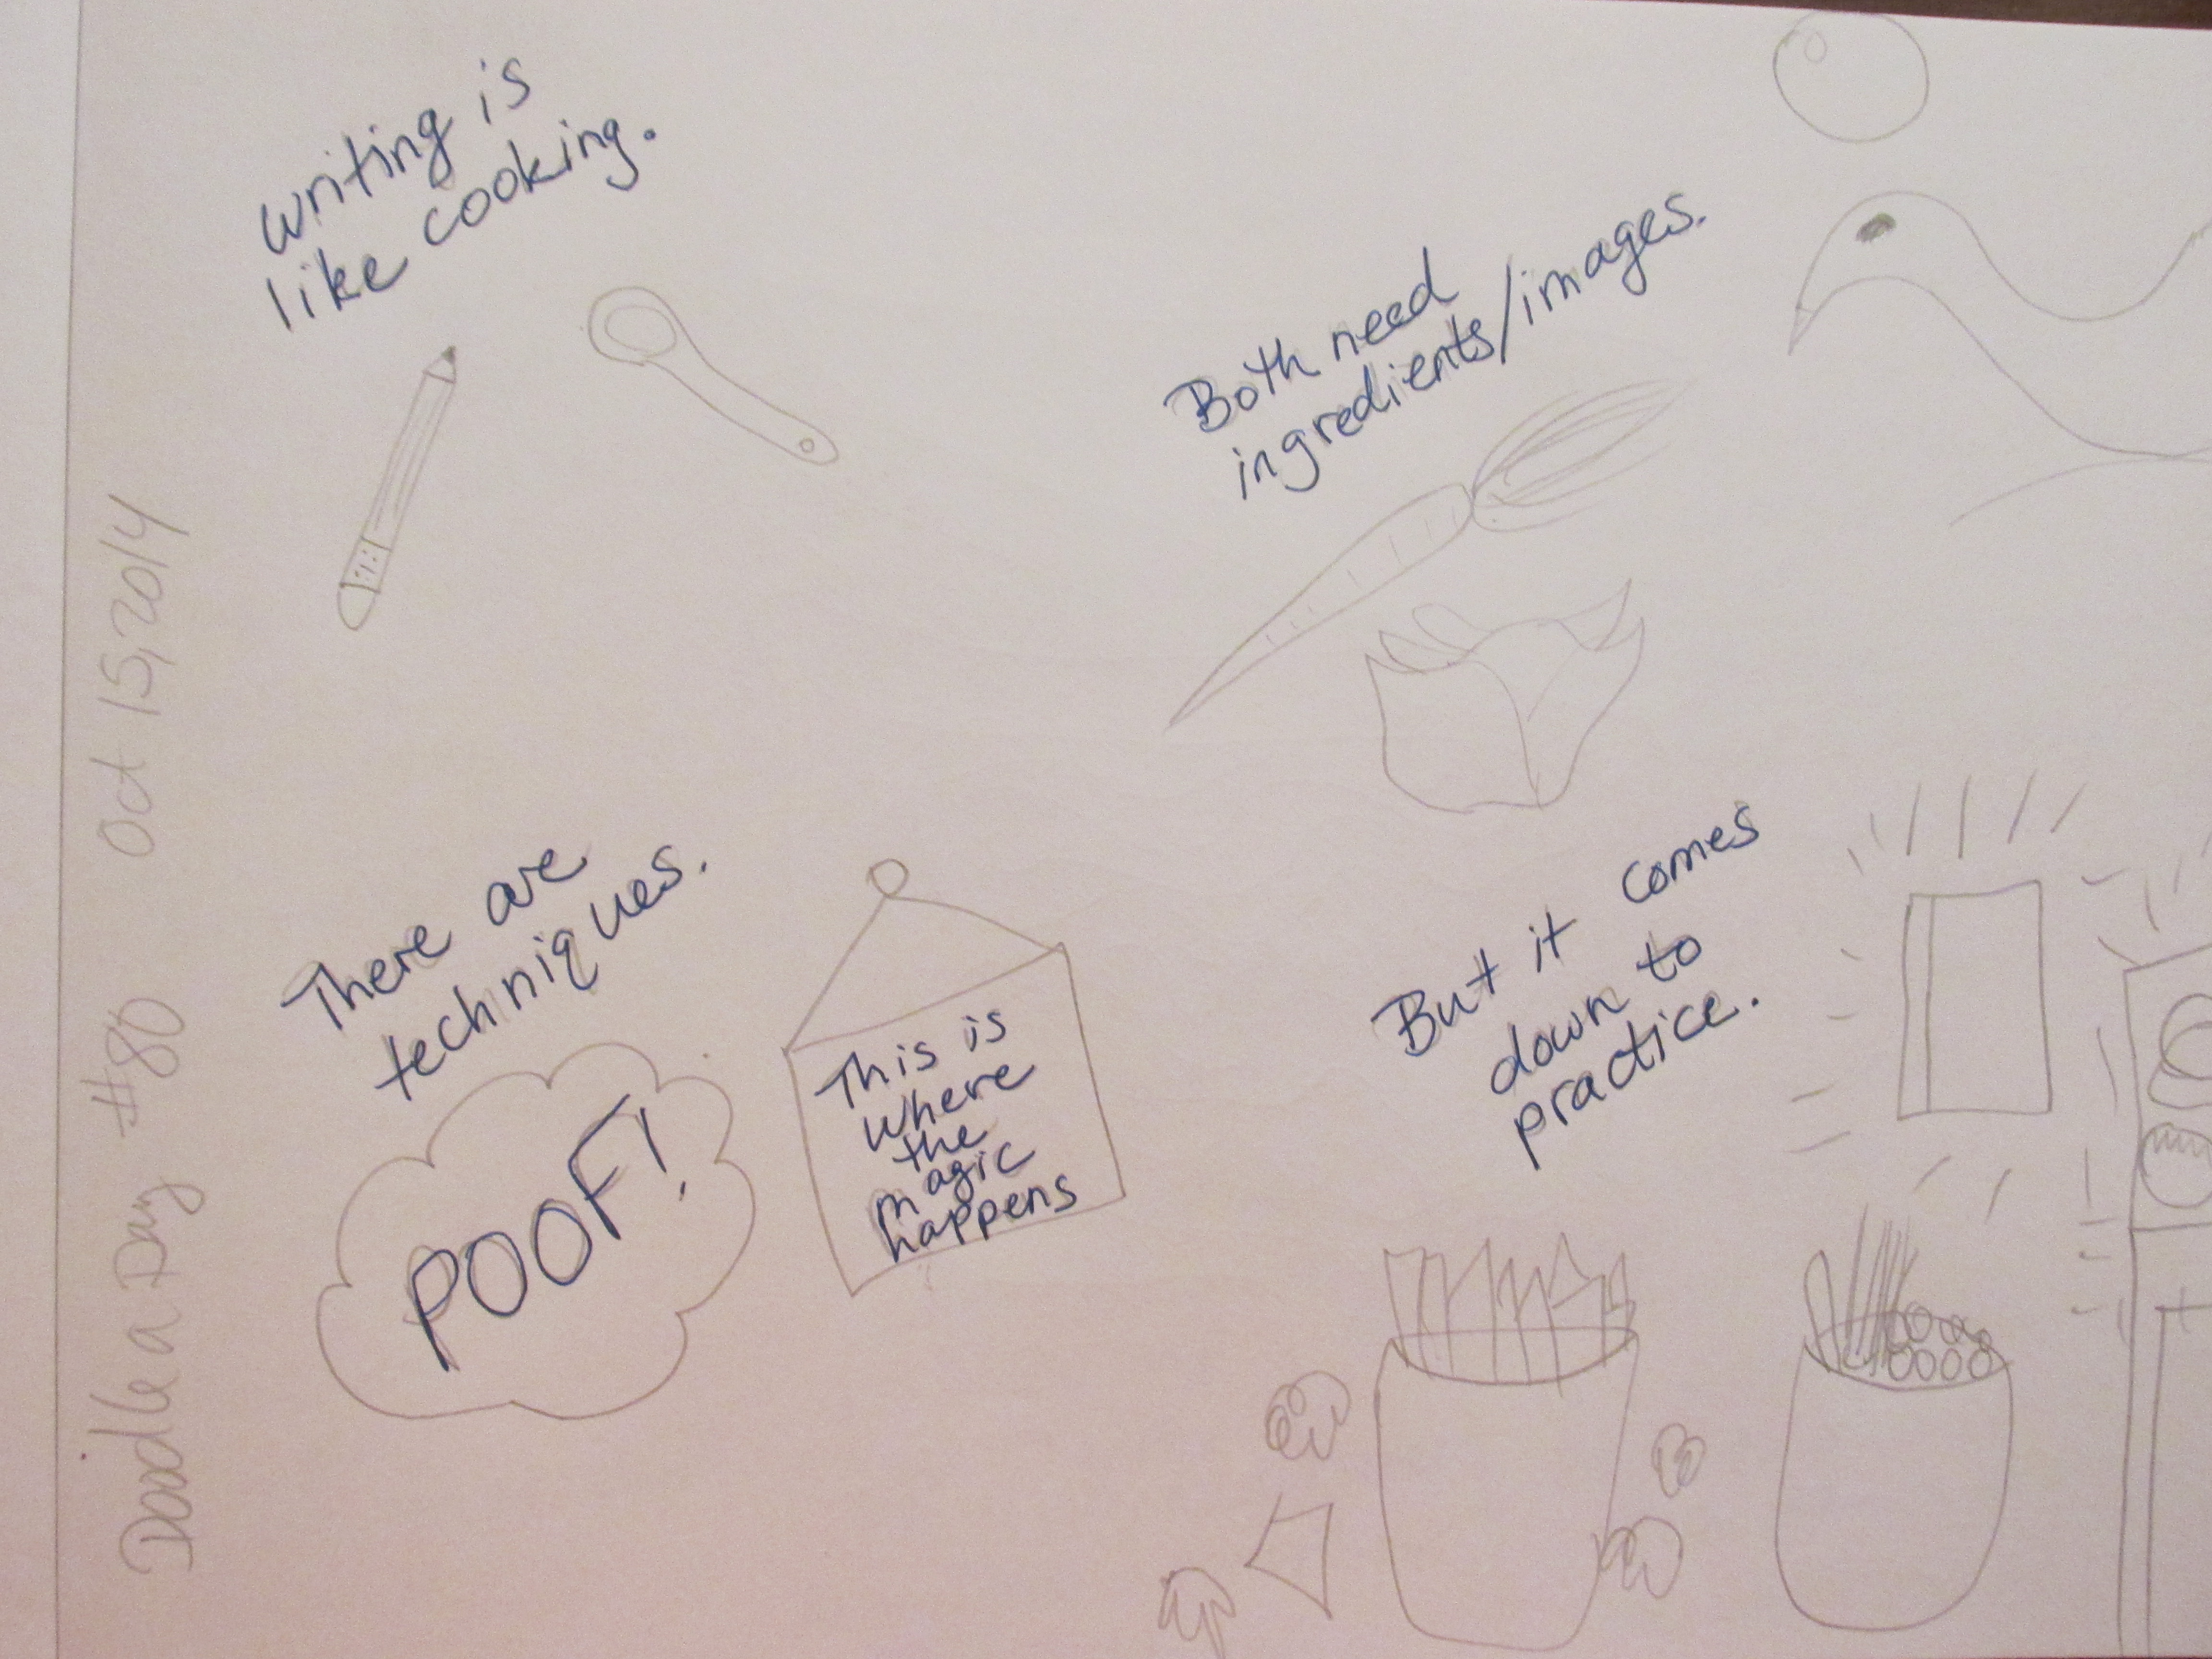 Doodle a Day #80 Oct 15, 2014
Writing is
like cooking.
Both need
ingredients/images.
There are
techniques.
POOF!
This is
where
the
magic
happens
But it comes
down to
practice.